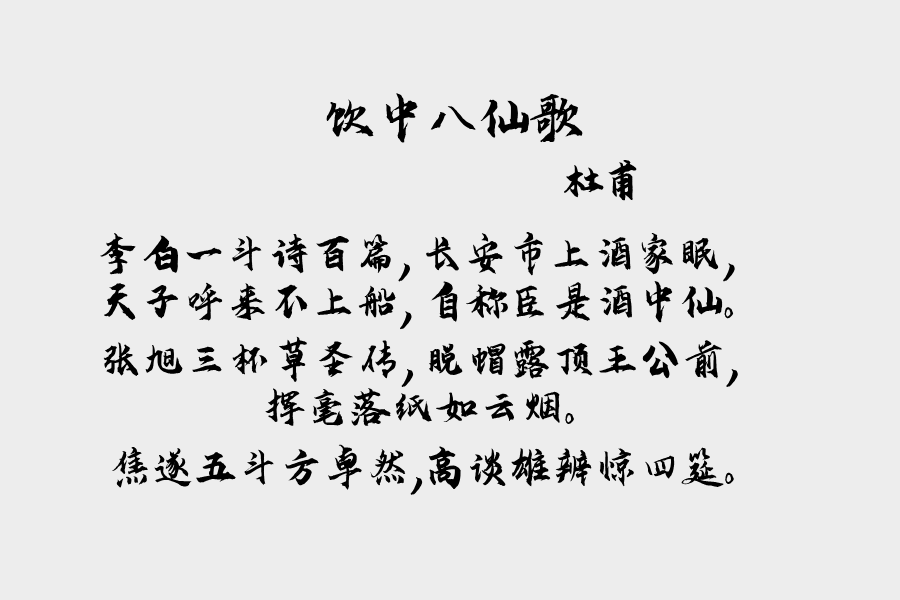 饮中八仙歌
杜甫
李白一斗诗百篇,长安市上酒家眠,
天子呼来不上船,自称臣是酒中仙。
张旭三杯草圣传,脱帽露顶王公前,
挥毫落纸如云烟。
焦遂五斗方卓然,高谈雄辨惊四筵。